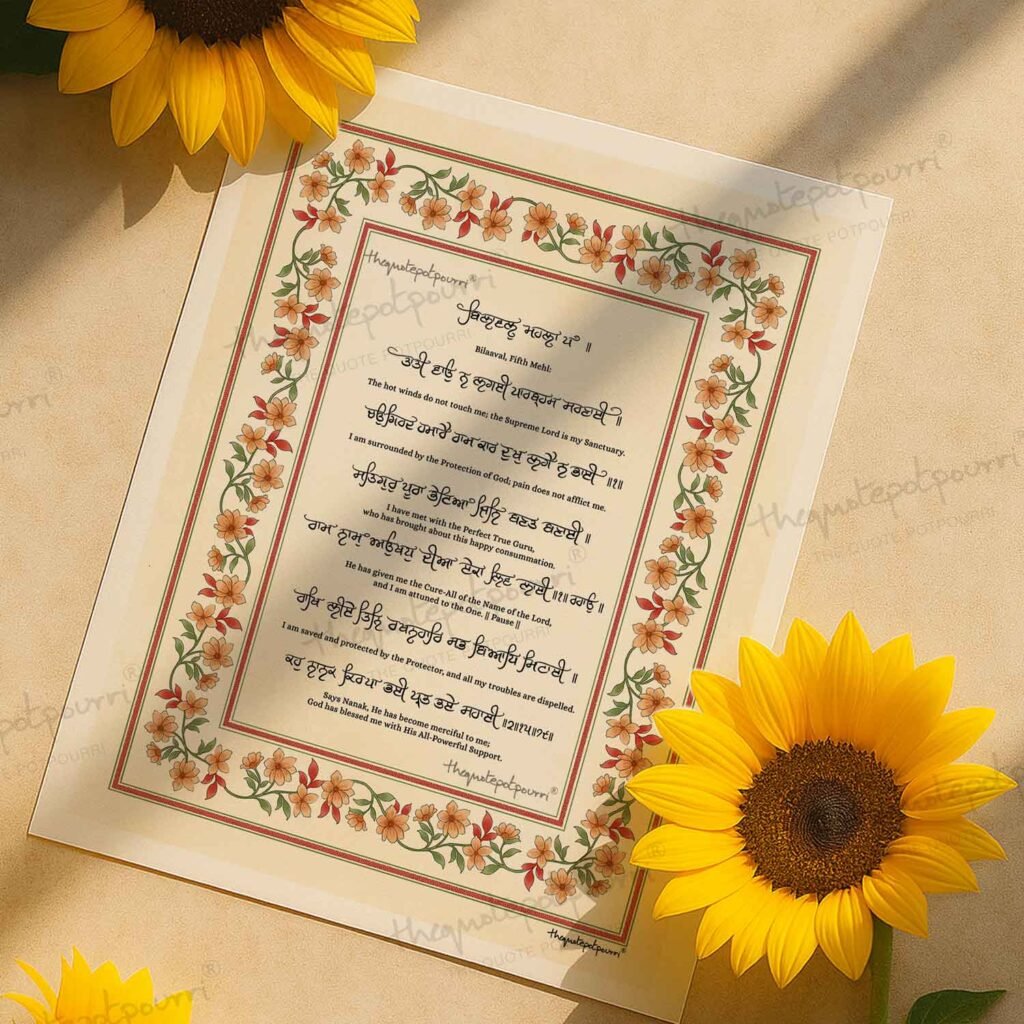 thequotepotpourri®
ਬਿਲਾਵਲੁ ਮਹਲਾ ੫ ॥
Bilaaval, Fifth Mehl:
ਤਾਤੀ ਵਾਉ ਨ ਲਗਈ ਪਾਰਬ੍ਰਹਮ ਸਰਣਾਈ ॥
The hot winds do not touch me; the Supreme Lord is my Sanctuary.
ਚਉਗਿਰਦ ਹਮਾਰੈ ਰਾਮ ਕਾਰ ਦੁਖੁ ਲਗੈ ਨ ਭਾਈ ॥੧॥
I am surrounded by the Protection of God; pain does not afflict me.
ਸਤਿਗੁਰੁ ਪੂਰਾ ਭੇਟਿਆ ਜਿਨਿ ਬਣਤ ਬਣਾਈ ॥
I have met with the Perfect True Guru,
who has brought about this happy consummation.
ਰਾਮ ਨਾਮੁ ਅਉਖਧੁ ਦੀਆ ਏਕਾ ਲਿਵ ਲਾਈ ॥੧॥ ਰਹਾਉ ॥
He has given me the Cure-All of the Name of the Lord,
and I am attuned to the One. || Pause ||
ਰਾਖਿ ਲੀਏ ਤਿਨਿ ਰਖਨਹਾਰਿ ਸਭ ਬਿਆਧਿ ਮਿਟਾਈ ॥
I am saved and protected by the Protector, and all my troubles are dispelled.
ਕਹੁ ਨਾਨਕ ਕਿਰਪਾ ਭਈ ਪ੍ਰਭ ਭਏ ਸਹਾਈ ॥੨॥੧੫॥੭੯॥
Says Nanak, He has become merciful to me;
God has blessed me with His All-Powerful Support.
thequotepotpourri®
thequotepotpourri®